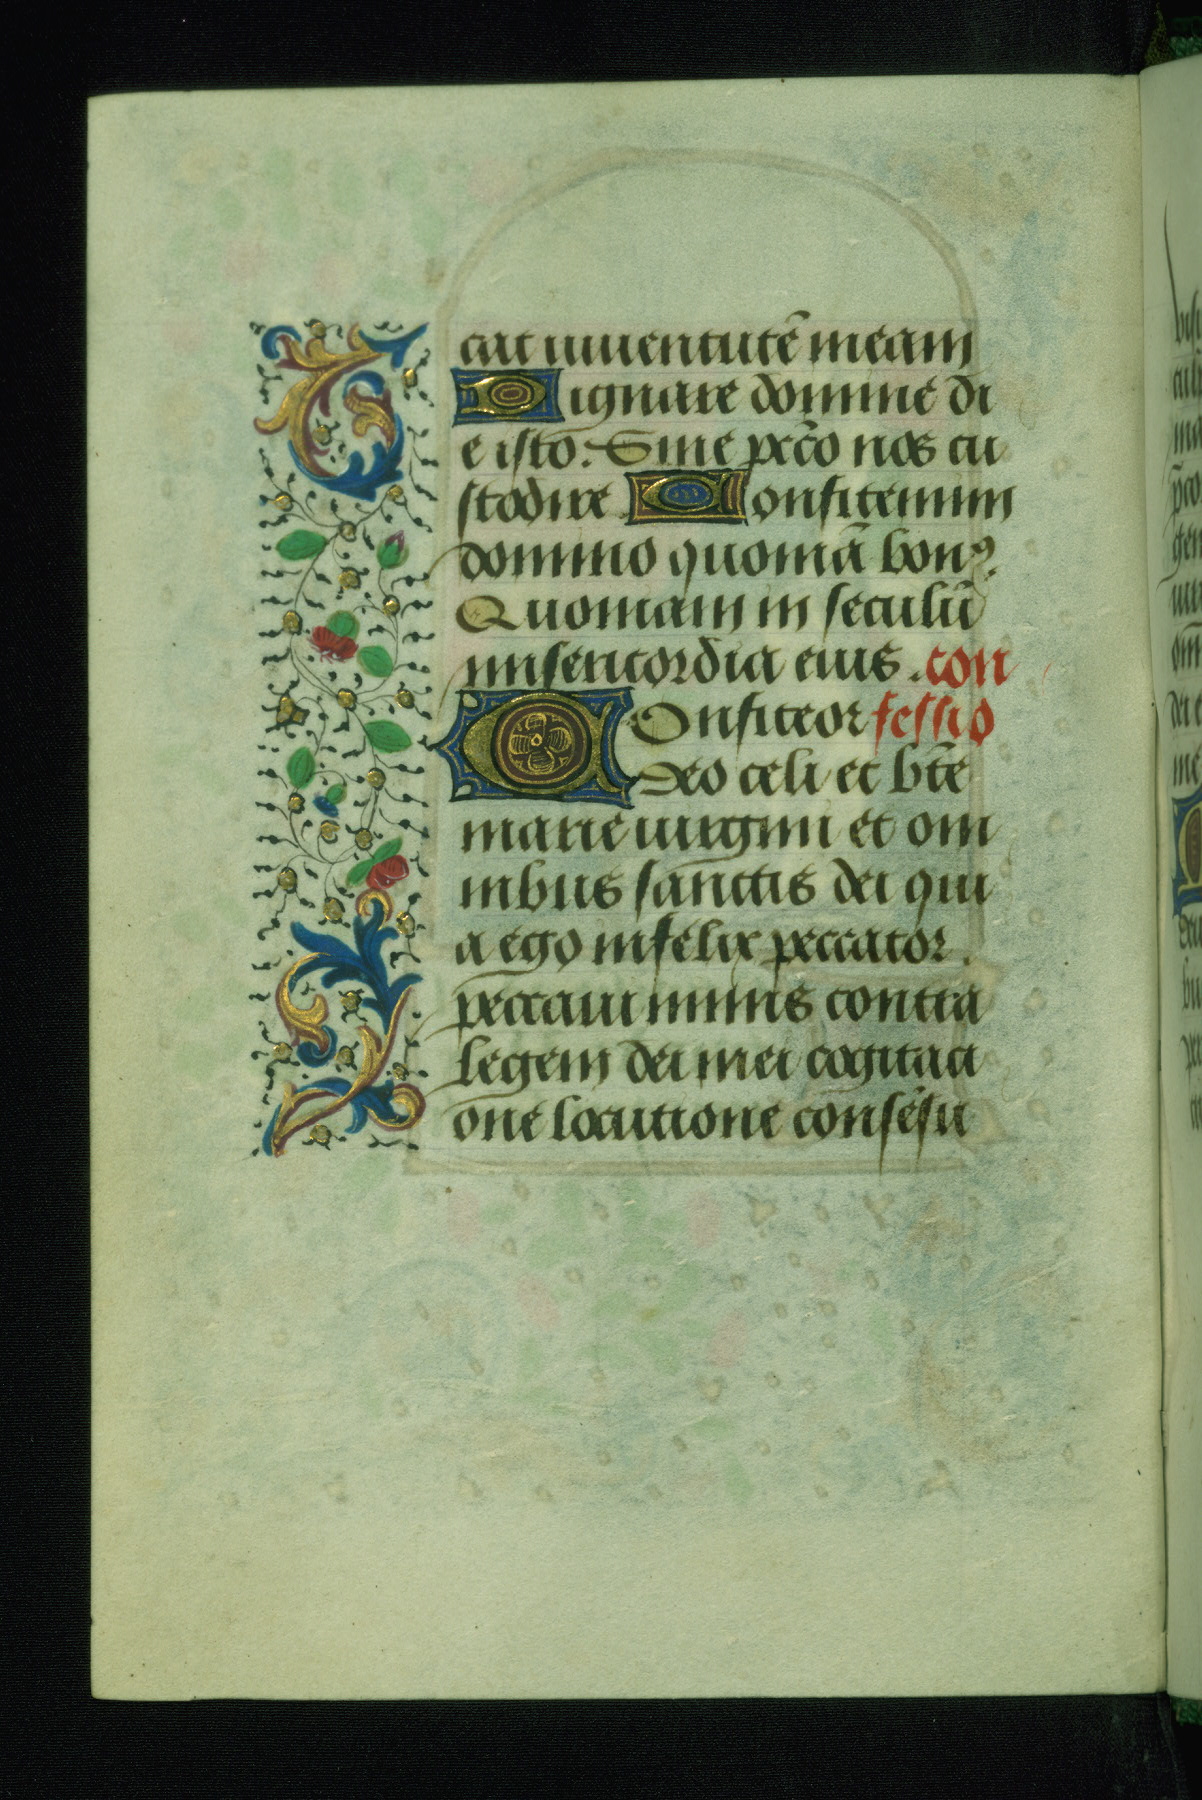 cat iuuentutē meam
Dignare domine di
e isto. Sine pctō nos cu
stodire Confitemini
domino quoniā bonꝯ.
Quoniam in seculū
misericordia eius. con
Confiteor fessio
deo celi et bt̄e
marie uirgini et om
nibus sanctis dei qui
a ego infelix peccator.
peccaui nimis contra
legem dei mei cogitaci
one locutione consēsu